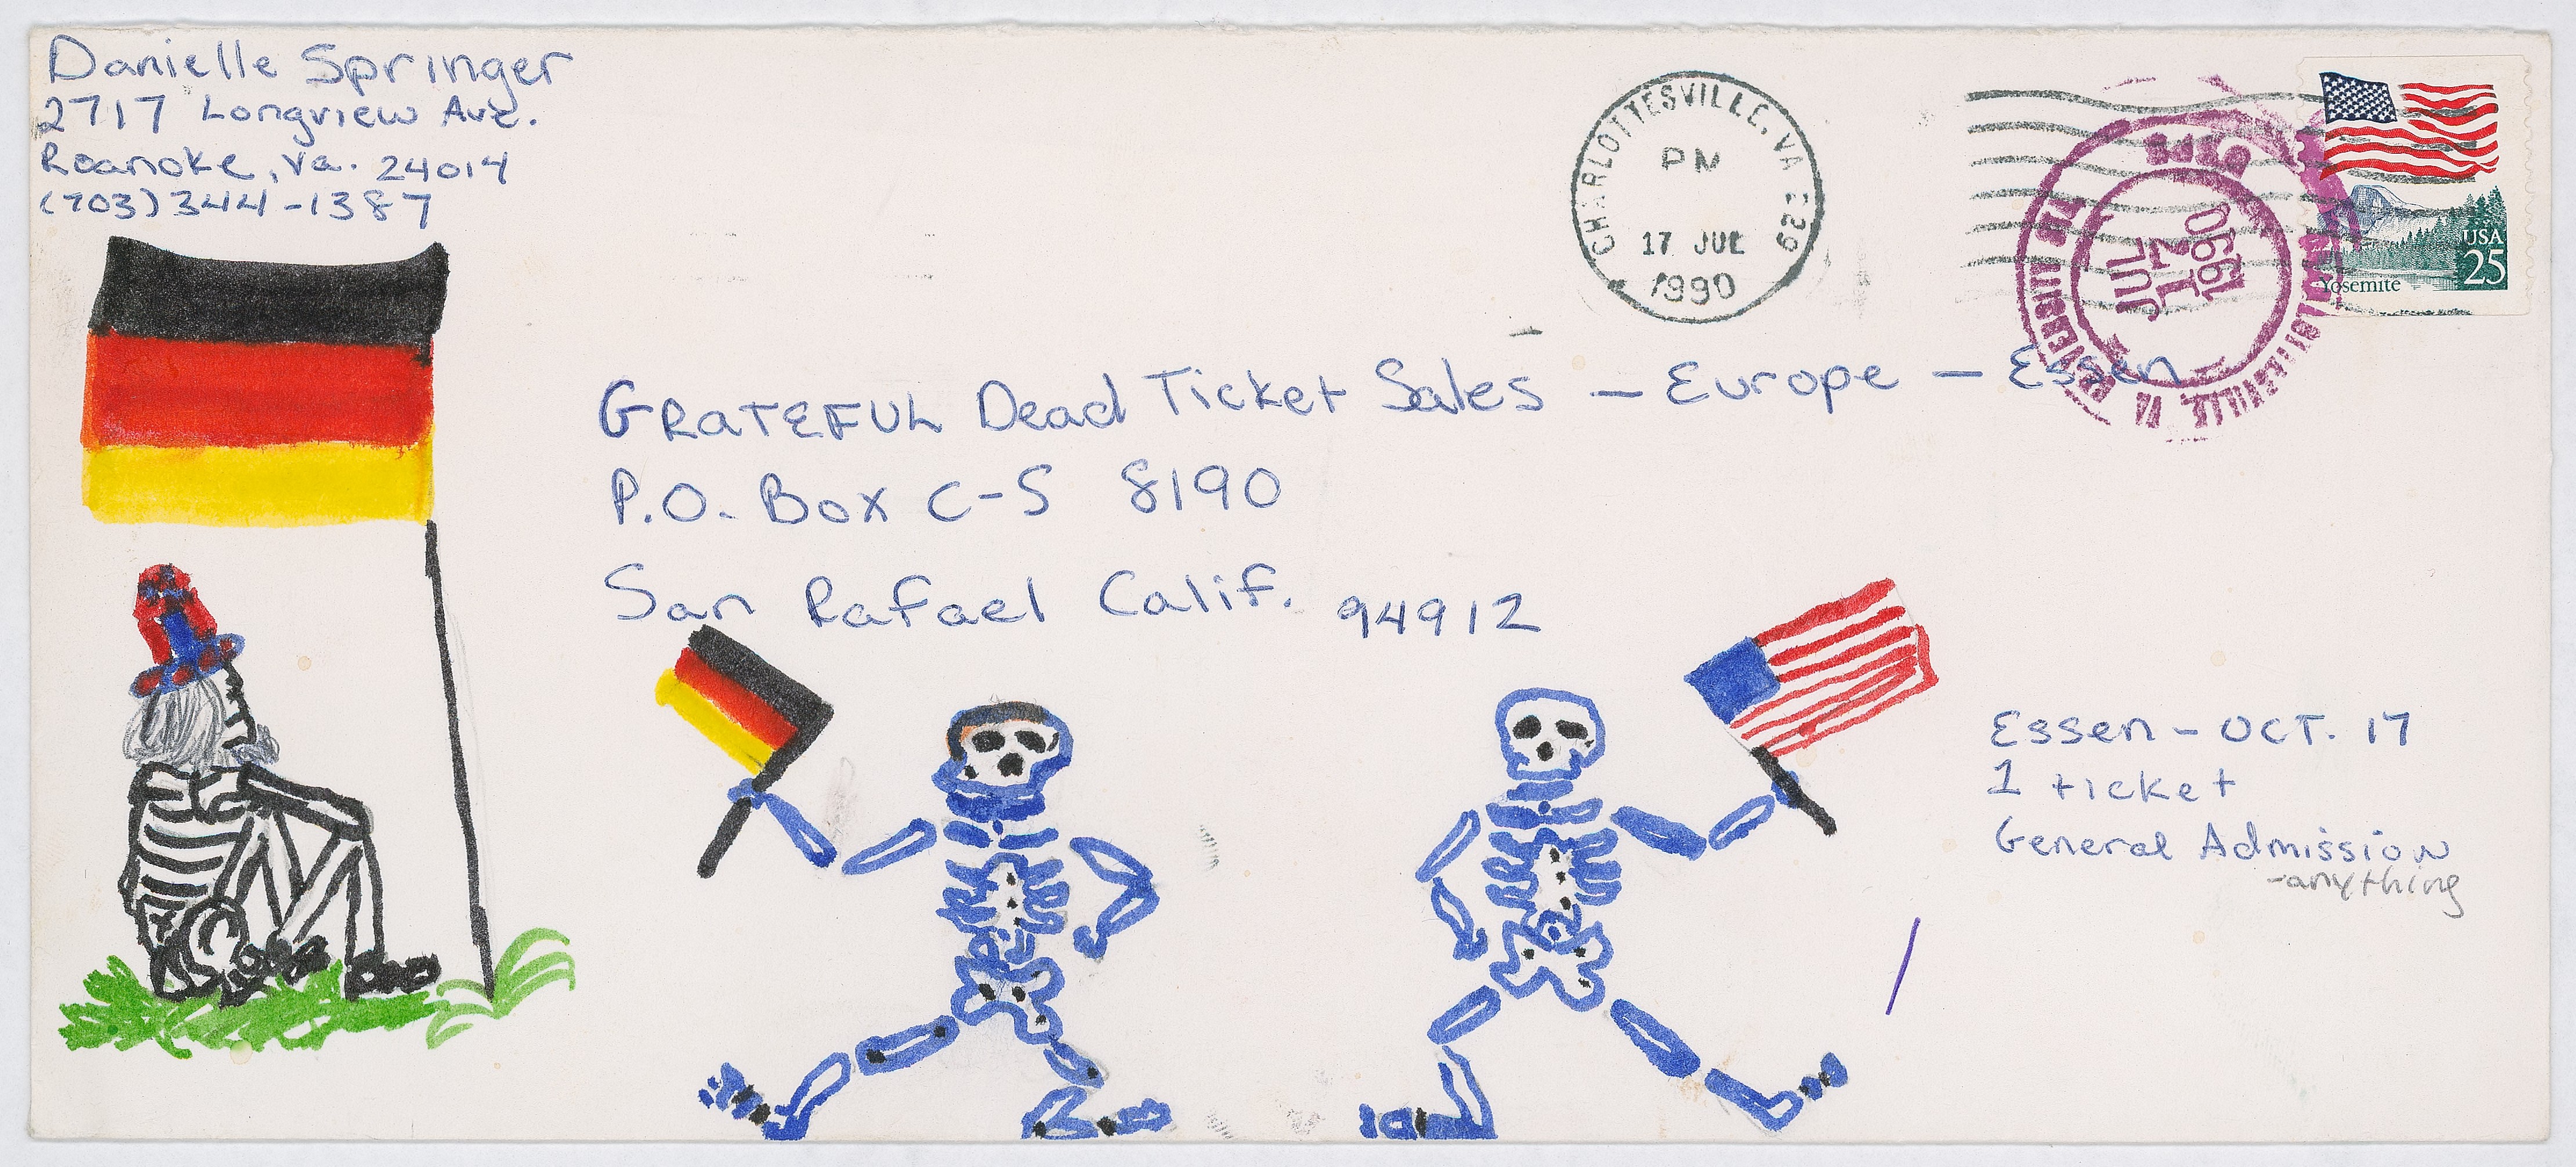 Danielle Springer
2717 Longview Ave.
Roanoke, Va. 24014
(703) 344-1387
CHARLOTTESVILLE, VA 229
PM
17 JUL
1990
JUL
17
1990
UNIVERSITY STA
CHARLOTTESVILLE, VA
USA
25
Yosemite
GRATEFUL Dead Ticket Sales — Europe — Essen
P.O. Box C-S 8190
San Rafael Calif. 94912
Essen - OCT. 17
1 ticket
General Admission
-anything